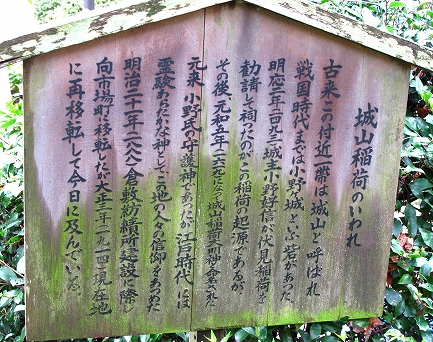 城山稲荷のいわれ
古来この付近一帯は城山と呼ばれ
戦国時代までは小野城という砦があった
明応二年一四九三城主小野好信が伏見稲荷を
勧請して祠ったのがこの稲荷の起源であるが
その後元和五年一六一九になって城山稲荷大明神と命名された
元来小野氏の守護神であったが江戸時代には
霊験あらたかな神としてこの地の人々の信仰をあつめた
明治二十一年一八八八倉敷紡績所建設に際し
向市場町に移転したが大正三年一九一四現在地
に再移転して今日に及んでいる。